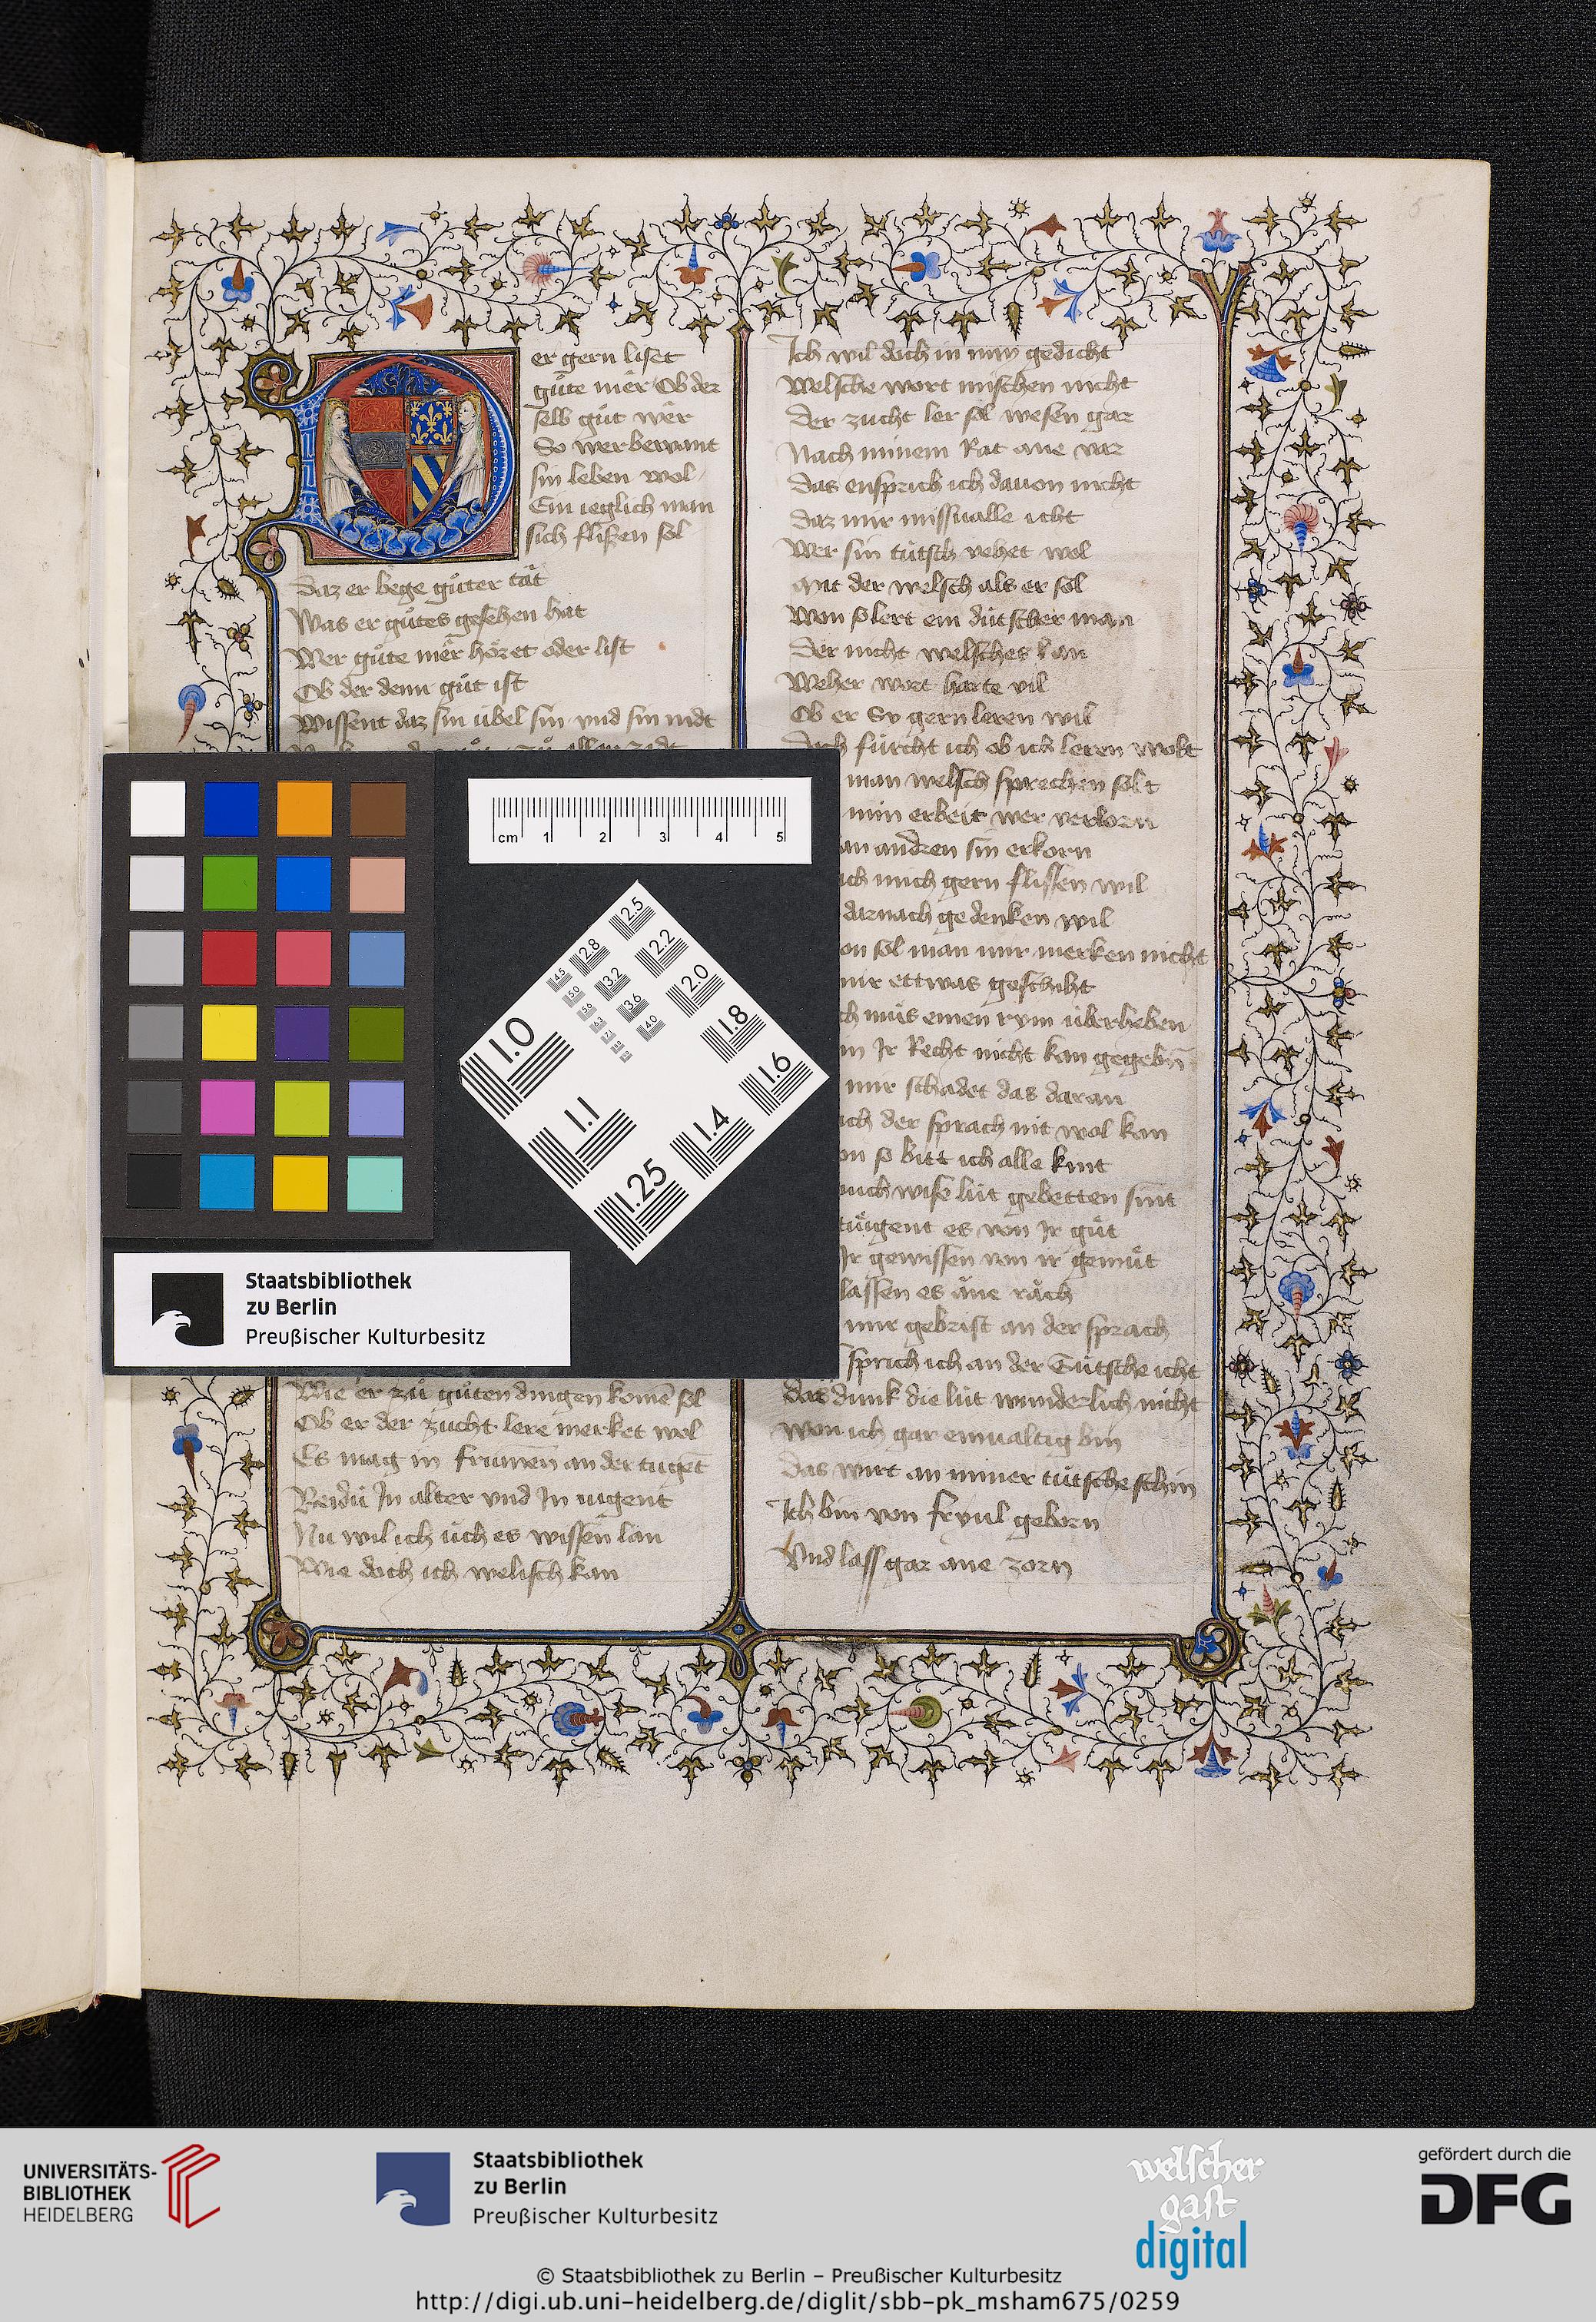 er gern liset
gůte mër Ob der
selb gůt wër
So wer bewant
sin leben wol
Ein ieglich man
sich flißen sol
Daz er bege gůter tät
Was er gůtes gesehen hat
Wer gůte mër hözet oder list
Ob der denn gůt ist
Wissent daz sin übel sin vnd sin nidt
Wie er zů gůten dingen komē sol
Ob er der zucht lere merket wol
Es mag in früwen an der tugēt
Beidü In alter vnd In iugent
Nu wil ich üch es wissen lan
Wie doch ich welisch kan
Ich wil doch in min gedicht
Welsche wort mischen nicht
Der zucht ler sol wesen gar
Nach minem Rat ane var
Das ensprich ich dauon nicht
Daz mir missualle icht
Wer sin tütsch vehet wol
Mit der welsch als er sol
Won so lert ein dütscher man
Der nicht welsches kan
Weher wort harte vil
Ob er So gern leren wil
fürcht ich ob ich leren wolt
man welsch sprechen solt
min erbeit wer verlorn
an andren sin erkorn
ich mich gern flissen wil
darnach gedenken wil
sol man mir merken nicht
mir ettwas geschiht
můs einen rym überheben
Ir Recht nicht kan gegebn̄
mir schadet das daran
ich der sprach nit wol kan
so bitt ich alle kint
wise lüt gebetten sint
es von Ir gůt
Ir gewissen von ir gemůt
lassen es äne räch
mir gebrist an der sprach
sprich ich an der Tütsche icht
das dunk die lüt wunderlich nicht
won ich gar einualtig bin
Das wirt an miner tütsche schin
Ich bin von fryul geborn
Vnd lass gar ane zorn
cm 1 2 3 4 5
2.5
2.8 2.2
4.5 3.2 2.0
5.0 3.6 1.8
5.6 4.0 1.6
6.3
1.0
1.1 1.4
1.25
Staatsbibliothek
zu Berlin
Preußischer Kulturbesitz
UNIVERSITÄTS-
BIBLIOTHEK
HEIDELBERG
Staatsbibliothek
zu Berlin
Preußischer Kulturbesitz
welscher
gast
digital
gefördert durch die
DFG
© Staatsbibliothek zu Berlin – Preußischer Kulturbesitz
http://digi.ub.uni-heidelberg.de/diglit/sbb-pk_msham675/0259